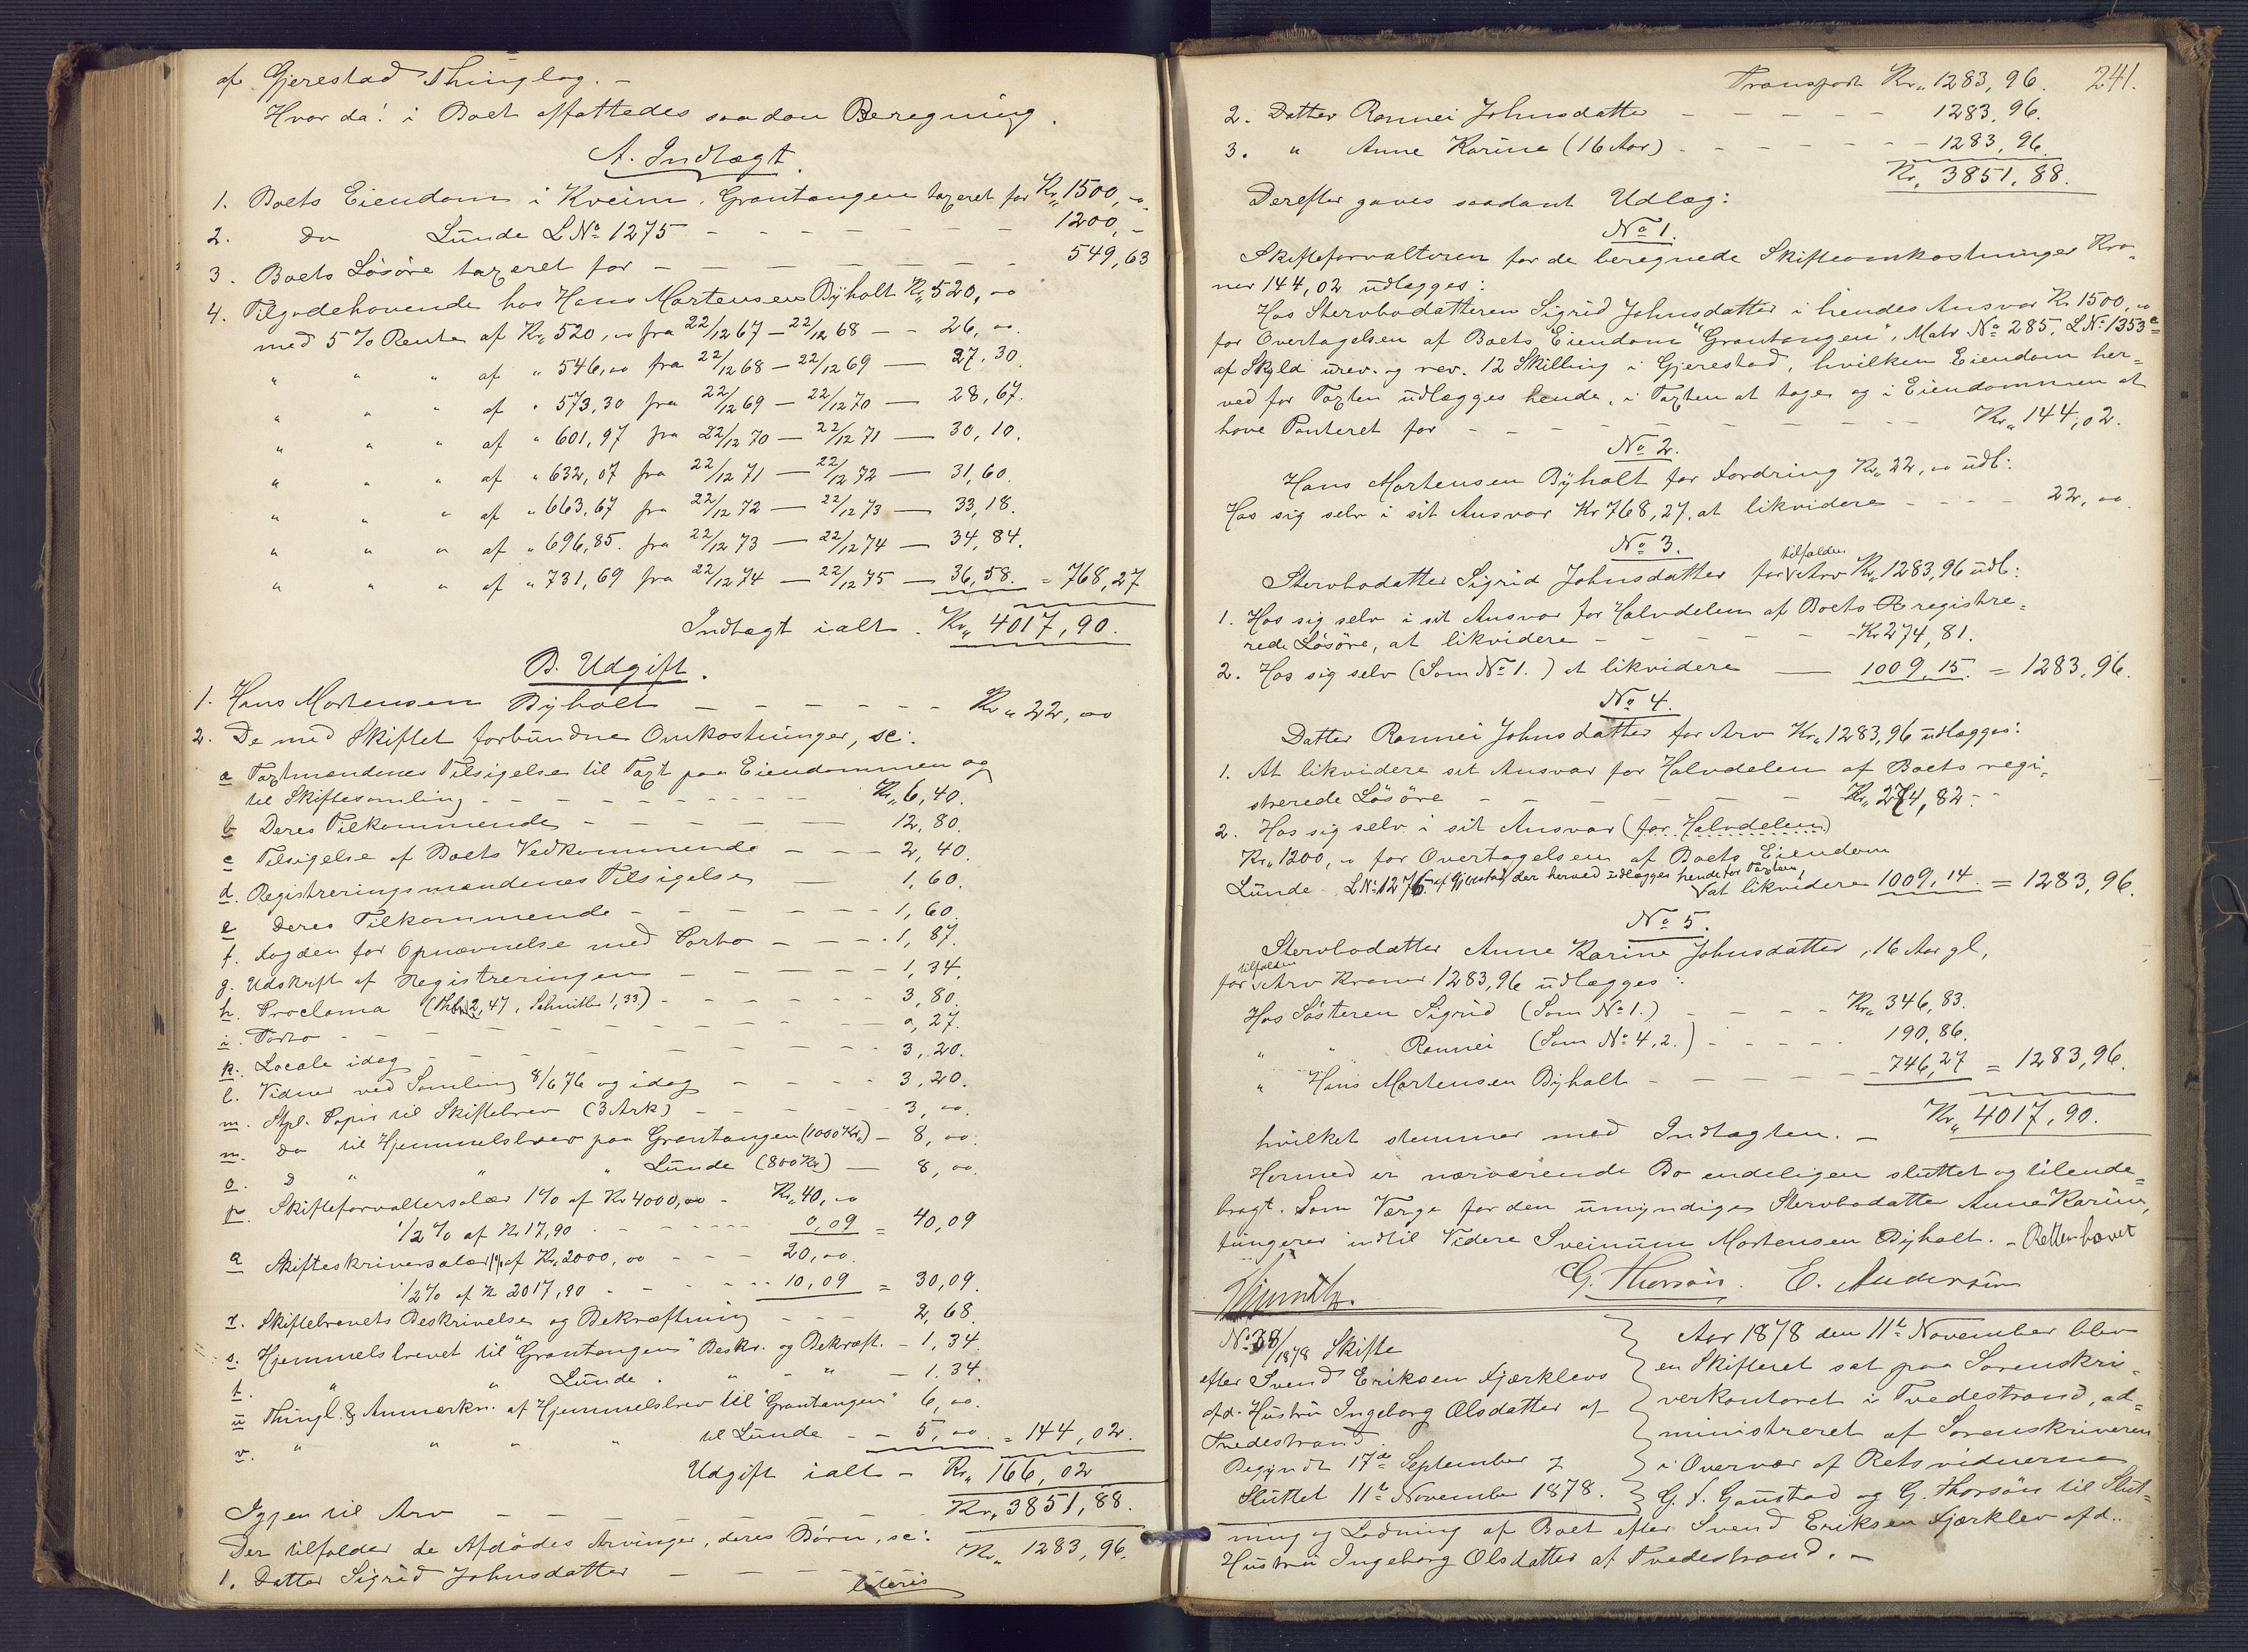 af Gjerestad Thinglag. –
Hvor da! i Boet affattedes saadan Beregning.
A. Indtægt.
1. Boets Eiendom i Kveim, Grantangen taxeret for Kr„ 1500, „
2. Do Lunde LNo 1275 – – – – – – – 1200, –
3. Boets Løsøre taxeret for – – – – – – – 549,63
4. Tilgodehavende hos Hans Mortensen Byholt Kr„ 520, „
med 5 % Rente af Kr„ 520, „ fra 22/12 67 – 22/12 68 – – 26, „.
„ „ „ af „ 546, „ fra 22/12 68 – 22/12 69 — 27.30
„ „ „ af „ 573,30 fra 22/12 69 – 22/12 70 — 28,67.
„ „ „ af „ 601,97 fra 22/12 70 — 22/12 71 — 30,10.
„ „ „ af „ 632,07 fra 22/12 71 — 22/12 72 — 31,60.
„ „ „ af „ 663,67 fra 22/12 72 — 22/12 73 — 33,18.
„ „ „ af „ 696,85. fra 22/12 73 — 22/12 74 — 34,84.
„ „ „ af „ 731,69 fra 22/12 74 — 22/12 75 — 36,58. = 768,27
Indtægt ialt. Kr„ 4017,90.
B. Udgift.
1. Hans Mortensen Byholt – – – – – – Kr„ 22, „
2. De med Skiftet forbundne Omkostninger, sc:
a Taxtmændenes Tilsigelse til Taxt paa Eiendommen og
til Skiftesamling – – – – – – – – – Kr„ 6,40.
b Deres Tilkommende – – – – – – 12,80.
c Tilsigelse af Boets Vedkommende – – – 2,40.
d. Registreringsmændenes Tilsigelse – – 1,60.
e Deres Tilkommende – – – – – – 1,60.
f. Fogden for Opnævnelse med Porto – – – 1,87.
g. Udskrift af Registreringen – – – – – 1,34.
h. Proclama (2,47, Schmitler 1,33) – – – – – 3,80.
i. Porto – – – – – – – – – – 0,27.
k. Locale idag – – – – – – – – 3,20.
l. Vidner ved Samling 8/6 76 og idag – – – – 3,20.
m. Stpl. Papir til Skiftebrev (3 Ark) – – – – – 3, „.
n. Do til Hjemmelsbrev paa Grantangen (1000 Kr„) – 8, „.
o. D „ „ „ Lunde (800 Kr) — 8, „.
p. Skifteforvaltersalær 1% af Kr 4000, „ – Kr„ 40, „
1/2 % af Kr 17,90 – – – – – – 0,09 = 40,09
q Skifteskriversalær 1% af Kr„ 2000, „ – – – 20, „
1/2 % af Kr 2017,90 – – – – – 10,09 = 30,09.
r. Skiftebrevets Beskrivelse og Bekræftning – – – 2,68.
s. Hjemmelsbrevet til "Grantangen" Beskr. og Bekræft. – 1,34.
t. „ „ Lunde. „ – „ – 1.34.
u Thingl. & Anmærkn. af Hjemmelsbrev til "Grantangen" 6, „.
v. „ „ „ „ til Lunde – – 5, „. = 144,02.
Udgift ialt – Kr„ 166,02
Igjen til Arv – – – – – – – Kr„ 3851,88.
Der tilfalder de Afdødes Arvinger, deres Børn, sc:
1. Datter Sigrid Johnsdatter – – – – Kr„ 1283,96.
lateris
Transport Kr„ 1283,96. 241.
2. Datter Rannei Johnsdatter – – – – – 1283,96.
3. „ Anne Karine (16 Aar) – – – – – – 1283,96.
Kr„ 3851,88.
Derefter gaves saadant Udlæg:
No 1.
Skifteforvalteren for de beregnede Skifteomkostninger Kro-
ner 144,02 udlægges:
Hos Stervbodatteren Sigrid Johnsdatter i hendes Ansvar Kr 1500, „
for Overtagelsen af Boets Eiendom "Grantangen", Matr No 285, LNo 1353c
af Skyld urev. og rev. 12 Skilling i Gjerestad, hvilken Eiendom her-
ved for Taxten udlægges hende, i Taxten at tage og i Eiendommen at
have Panteret for – – – – – – – – – – Kr„ 144,02.
No 2.
Hans Mortensen Byholt for Fordring Kr„ 22, „ udl:
Hos sig selv i sit Ansvar Kr 768,27, at likvidere – – – – 22, „.
No 3.
Stervbodatter Sigrid Johnsdatter for tilfalden Arv Kr„ 1283,96 udl:
1. Hos sig selv i sit Ansvar for Halvdelen af Boets Registre-
rede Løsøre, at likvidere – – – – – – Kr 274,81.
2. Hos sig selv (Som No 1.) at likvidere — 1009,15. = 1283,96.
No 4.
Datter Rannei Johnsdatter for Arv Kr„ 1283,96 udlægges:
1. At likvidere sit Ansvar for Halvdelen af Boets regi-
strerede Løsøre – – – – – – Kr„ 274,82. –
2. Hos sig selv i sit Ansvar (for Halvdelen)
Kr„ 1200, „ for Overtagelsen af Boets Eiendom
Lunde LNo 1275 af Gjerestad, der herved udlægges hende for Taxten,
at likvidere 1009,14. = 1283,96.
No 5.
Stervbodatter Anne Karine Johnsdatter, 16 Aar gl,
for tilfalden Arv Kroner 1283,96 udlægges:
Hos Søsteren Sigrid (Som No 1.) – – – – Kr„ 346,83.
„ „ Rannei (Som No 4,2.) – – – – – 190,86.
„ Hans Mortensen Byholt – – – – – – 746,27 = 1283,96.
hvilket stemmer med Indtægten. – Kr„ 4017,90.
Hermed er nærværende Bo endeligen sluttet og tilende-
bragt. Som Værge for den umyndige Stervbodatter Anne Karine,
fungerer indtil Videre Sveinum Mortensen Byholt. – Retten hævet
G. Thorsøn. E. Andersen
No 38/1878 Skifte
efter Svend Eriksen Fjærklevs
afd. Hustru Ingeborg Olsdatter af
Tvedestrand
Begyndt 17de September &
Sluttet 11te November 1878.
Aar 1878 den 11te November blev
en Skifteret sat paa Sorenskri-
verkontoret i Tvedestrand, ad-
ministreret af Sorenskriveren
i Overvær af Retsvidnerne
G. F. Gaustad og G. Thorsøn til Slut-
ning og Lodning af Boet efter Svend Eriksen Fjærklev afd.
Hustru Ingeborg Olsdatter af Tvedestrand. –